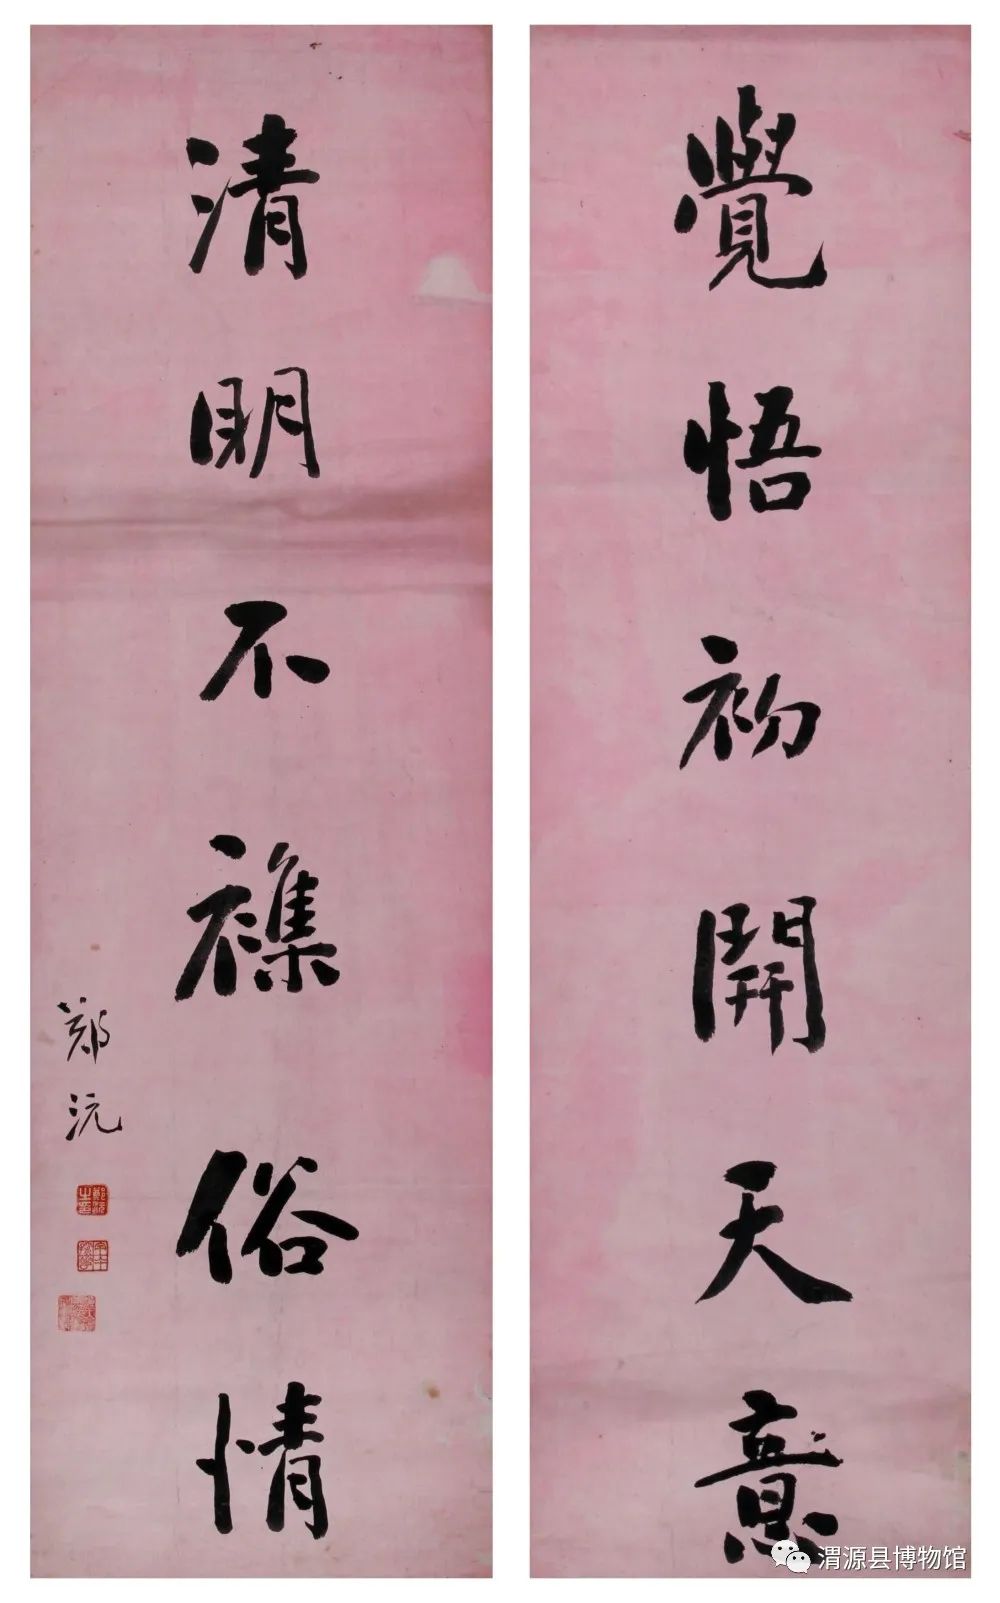 覺悟初開天意
清明不襍俗情
鄭沅
渭源县博物馆